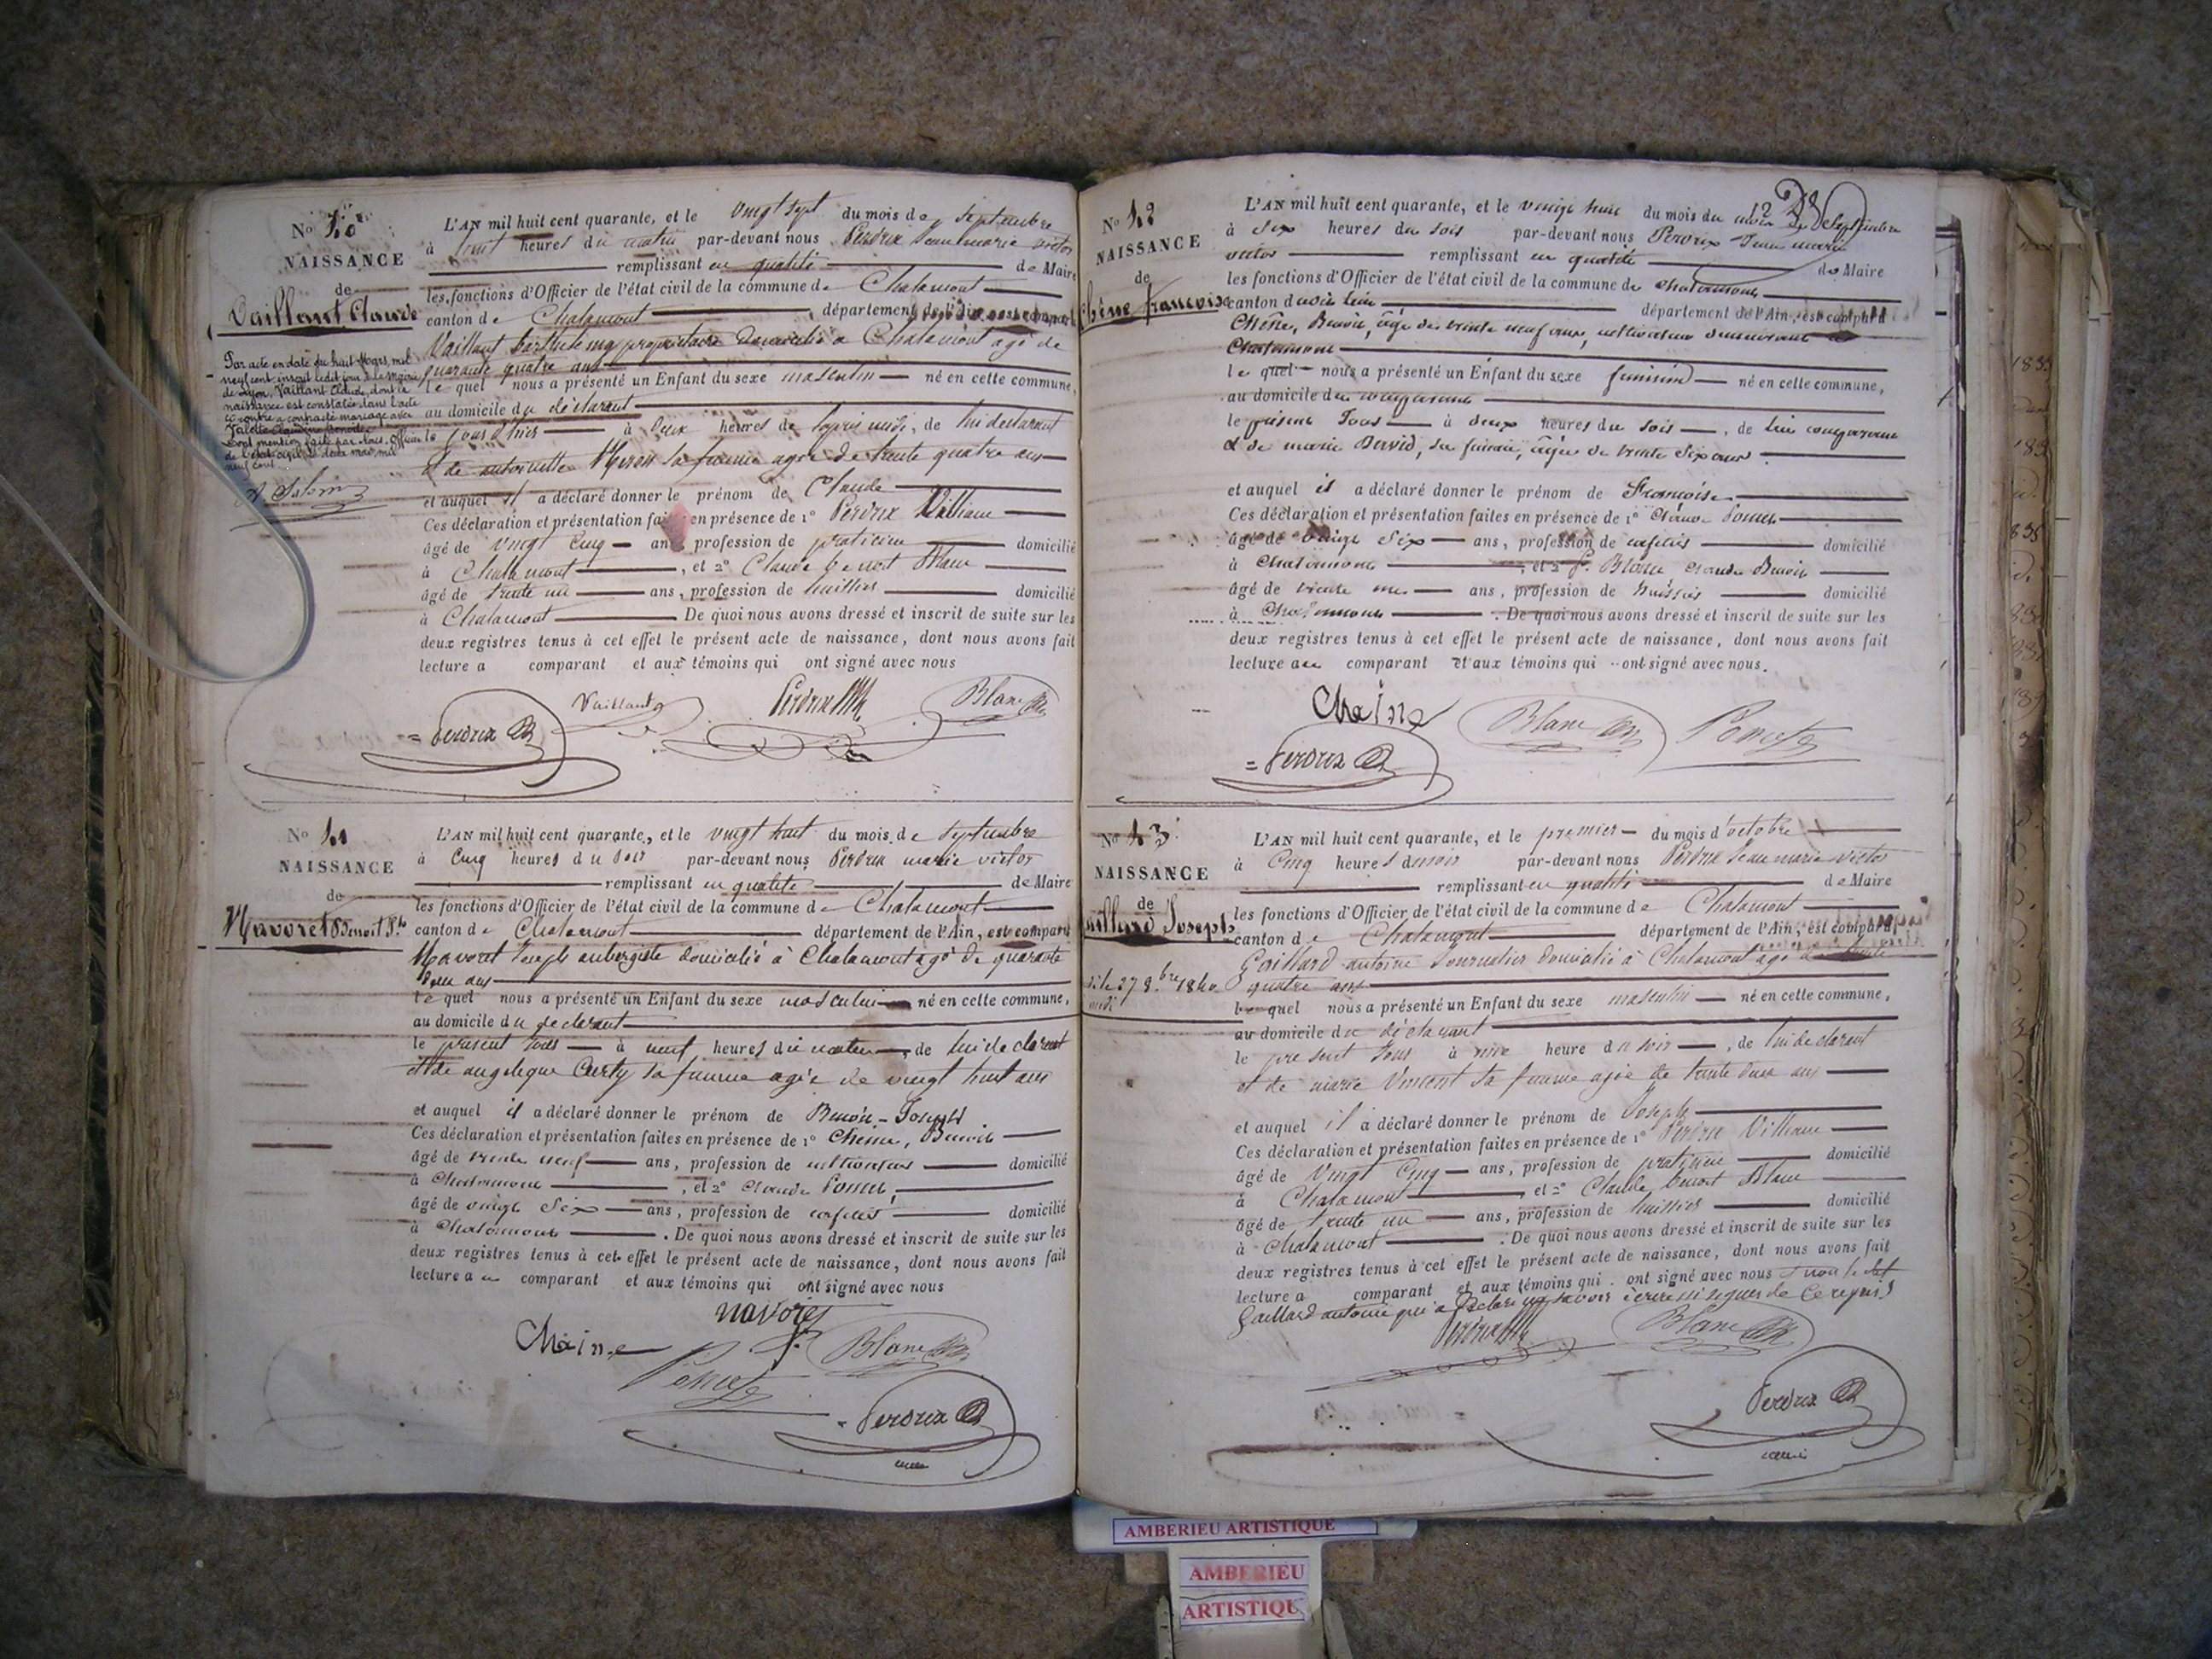 No 40
NAISSANCE
de
Vaillant Claude
Par acte en date du huit Mars mil
neuf cent, inscrit ledit jour à la Mairie
de Lyon, Vaillant Claude, dont la
naissance est constatée dans l'acte
ci-contre a contracté mariage avec
Valette Claudine Benoite
Dont mention faite par Nous, Officier
de l'état civil, le douze mars mil
neuf cent
L'AN mil huit cent quarante, et le vingt sept du mois de septembre
à huit heures du matin par-devant nous Perdrix Jean marie victor
remplissant en qualité de Maire
les fonctions d'Officier de l'état civil de la commune de Chalamont
canton de Chalamont département de l'Ain, est comparu
Vaillant barthelemy propriétaire domicilié à Chalamont agé de
quarante quatre ans
le quel nous a présenté un Enfant du sexe masculin né en cette commune,
au domicile du déclarant
le jour d'hier à deux heures de l'après midi, de lui déclarant
& de antoinette sa femme agée de trente quatre ans
et auquel il a déclaré donner le prénom de Claude
Ces déclaration et présentation faites en présence de 1º Perdrix William
âgé de vingt cinq ans, profession de praticien domicilié
à Chalamont, et 2º Claude benoit Blanc
âgé de trente un ans, profession de huissier domicilié
à Chalamont De quoi nous avons dressé et inscrit de suite sur les
deux registres tenus à cet effet le présent acte de naissance, dont nous avons fait
lecture a comparant et aux témoins qui ont signé avec nous
Vaillant Perdrix Blanc
= Perdrix
No 41
NAISSANCE
de
Navoret Benoit Jh
L'AN mil huit cent quarante, et le vingt huit du mois de septembre
à cinq heures du soir par-devant nous Perdrix marie victor
remplissant en qualité de Maire
les fonctions d'Officier de l'état civil de la commune de Chalamont
canton de Chalamont département de l'Ain, est comparu
Navoret Joseph aubergiste domicilié à Chalamont agé de quarante
deux ans
le quel nous a présenté un Enfant du sexe masculin né en cette commune,
au domicile du declarant
le present jour à neuf heures du matin, de lui declarant
et de angelique Curty sa femme agée de vingt huit ans
et auquel il a déclaré donner le prénom de Benoit-Joseph
Ces déclaration et présentation faites en présence de 1º Chêne, Benoit
âgé de trente neuf ans, profession de cultivateur domicilié
à Chalamont, et 2º Claude Poncet,
âgé de vingt six ans, profession de cafetier domicilié
à Chalamont. De quoi nous avons dressé et inscrit de suite sur les
deux registres tenus à cet effet le présent acte de naissance, dont nous avons fait
lecture au comparant et aux témoins qui ont signé avec nous
navoret
Chaine Blanc
Poncet
= Perdrix
maire
28
No 42
NAISSANCE
de
Chêne françoise
L'AN mil huit cent quarante, et le vingt huit du mois du mois de Septembre
à six heures du soir par-devant nous Perdrix Jean marie
victor remplissant en qualité de Maire
les fonctions d'Officier de l'état civil de la commune de Chalamont
canton département de l'Ain, est comparu
Chêne, Benoit, âgé de trente neuf ans, cultivateur demeurant à
Chalamont
le quel nous a présenté un Enfant du sexe féminin né en cette commune,
au domicile du comparant
le présent Jour à deux heures du soir, de lui comparant
& de marie David, sa femme, âgée de trente six ans.
et auquel il a déclaré donner le prénom de Françoise
Ces déclaration et présentation faites en présence de 1º Claude Poncet
âgé de vingt six ans, profession de cafetier domicilié
à Chalamont, et 2º Blanc Claude Benoit
âgé de trente un ans, profession de huissier domicilié
à Chalamont. De quoi nous avons dressé et inscrit de suite sur les
deux registres tenus à cet effet le présent acte de naissance, dont nous avons fait
lecture au comparant et aux témoins qui ont signé avec nous.
Chaine Blanc Poncet
= Perdrix
No 43
NAISSANCE
de
Gaillard Joseph
le 27 8.bre 1840
L'AN mil huit cent quarante, et le premier du mois d'octobre
à cinq heures du soir par-devant nous Perdrix Jean marie victor
remplissant en qualité de Maire
les fonctions d'Officier de l'état civil de la commune de Chalamont
canton de Chalamont département de l'Ain, est comparu
Gaillard antoine Journalier domicilié à Chalamont agé de trente
quatre ans
le quel nous a présenté un Enfant du sexe masculin né en cette commune,
au domicile du déclarant
le present Jour à une heure du soir, de lui declarant
et de marie Vincent sa femme agée de trente deux ans
et auquel il a déclaré donner le prénom de Joseph
Ces déclaration et présentation faites en présence de 1º Perdrix William
âgé de vingt cinq ans, profession de praticien domicilié
à Chalamont, et 2º Claude benoit Blanc
âgé de trente un ans, profession de huissier domicilié
à Chalamont. De quoi nous avons dressé et inscrit de suite sur les
deux registres tenus à cet effet le présent acte de naissance, dont nous avons fait
lecture a comparant et aux témoins qui ont signé avec nous non le dit
Gaillard antoine qui a declaré ne savoir écrire ni signer de ce requis
Perdrix Blanc
Perdrix
maire
AMBERIEU ARTISTIQUE
AMBERIEU
ARTISTIQUE